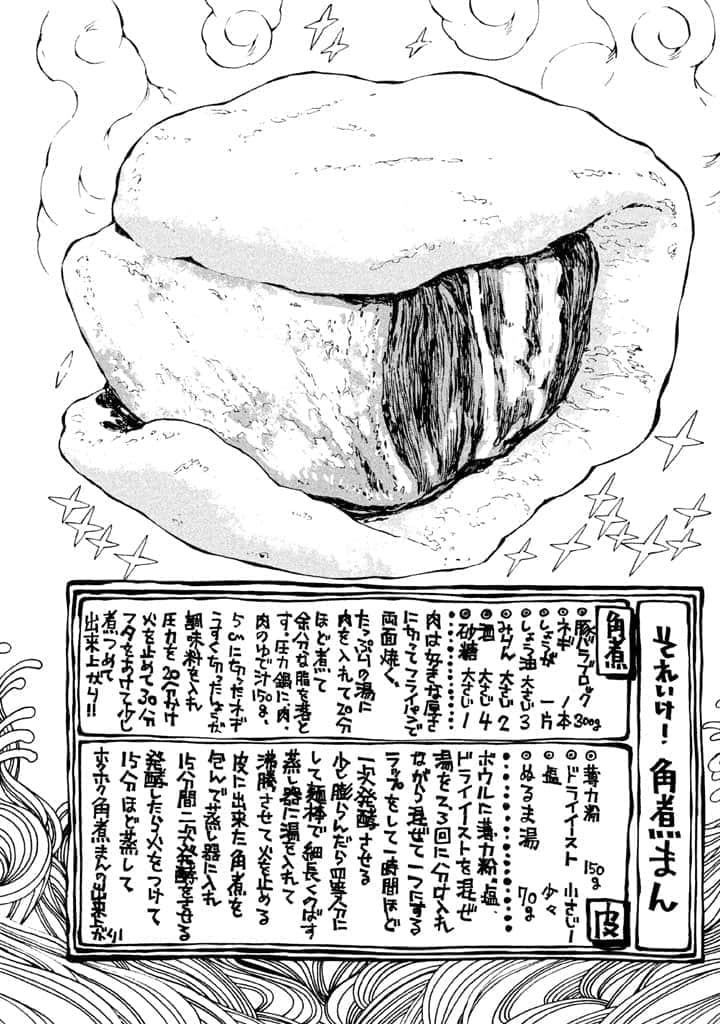 それいけ！角煮まん
角煮
◎豚バラブロック 300g
◎ネギ 1本
◎しょうが 一片
◎しょう油 大さじ3
◎みりん 大さじ2
◎酒 大さじ4
◎砂糖 大さじ1
肉は好きな厚さ
に切ってフライパンで
両面焼く。
たっぷりの湯に
肉を入れて20分
ほど煮て
余分な脂を落と
す。圧力鍋に肉、
肉のゆで汁150g、
5cmに切ったネギ
うすく切ったしょうが
調味料を入れ
圧力を20分かけ
火を止めて30分
フタをあけて少し
煮つめて
出来上がり!!
皮
◎薄力粉 150g
◎ドライイースト 小さじ1
◎塩 少々
◎ぬるま湯 70g
ボウルに薄力粉、塩、
ドライイーストを混ぜ
湯を2、3回に分け入れ
ながら混ぜて一つにする
ラップをして一時間ほど
一次発酵させる
少し膨らんだら四等分に
して麺棒で細長くのばす
蒸し器に湯を入れて
沸騰させて火を止める
皮に出来た角煮を
包んで蒸し器に入れ
15分間二次発酵をさせる
発酵したら火をつけて
15分ほど蒸して
ホクホク角煮まんの出来上がり！